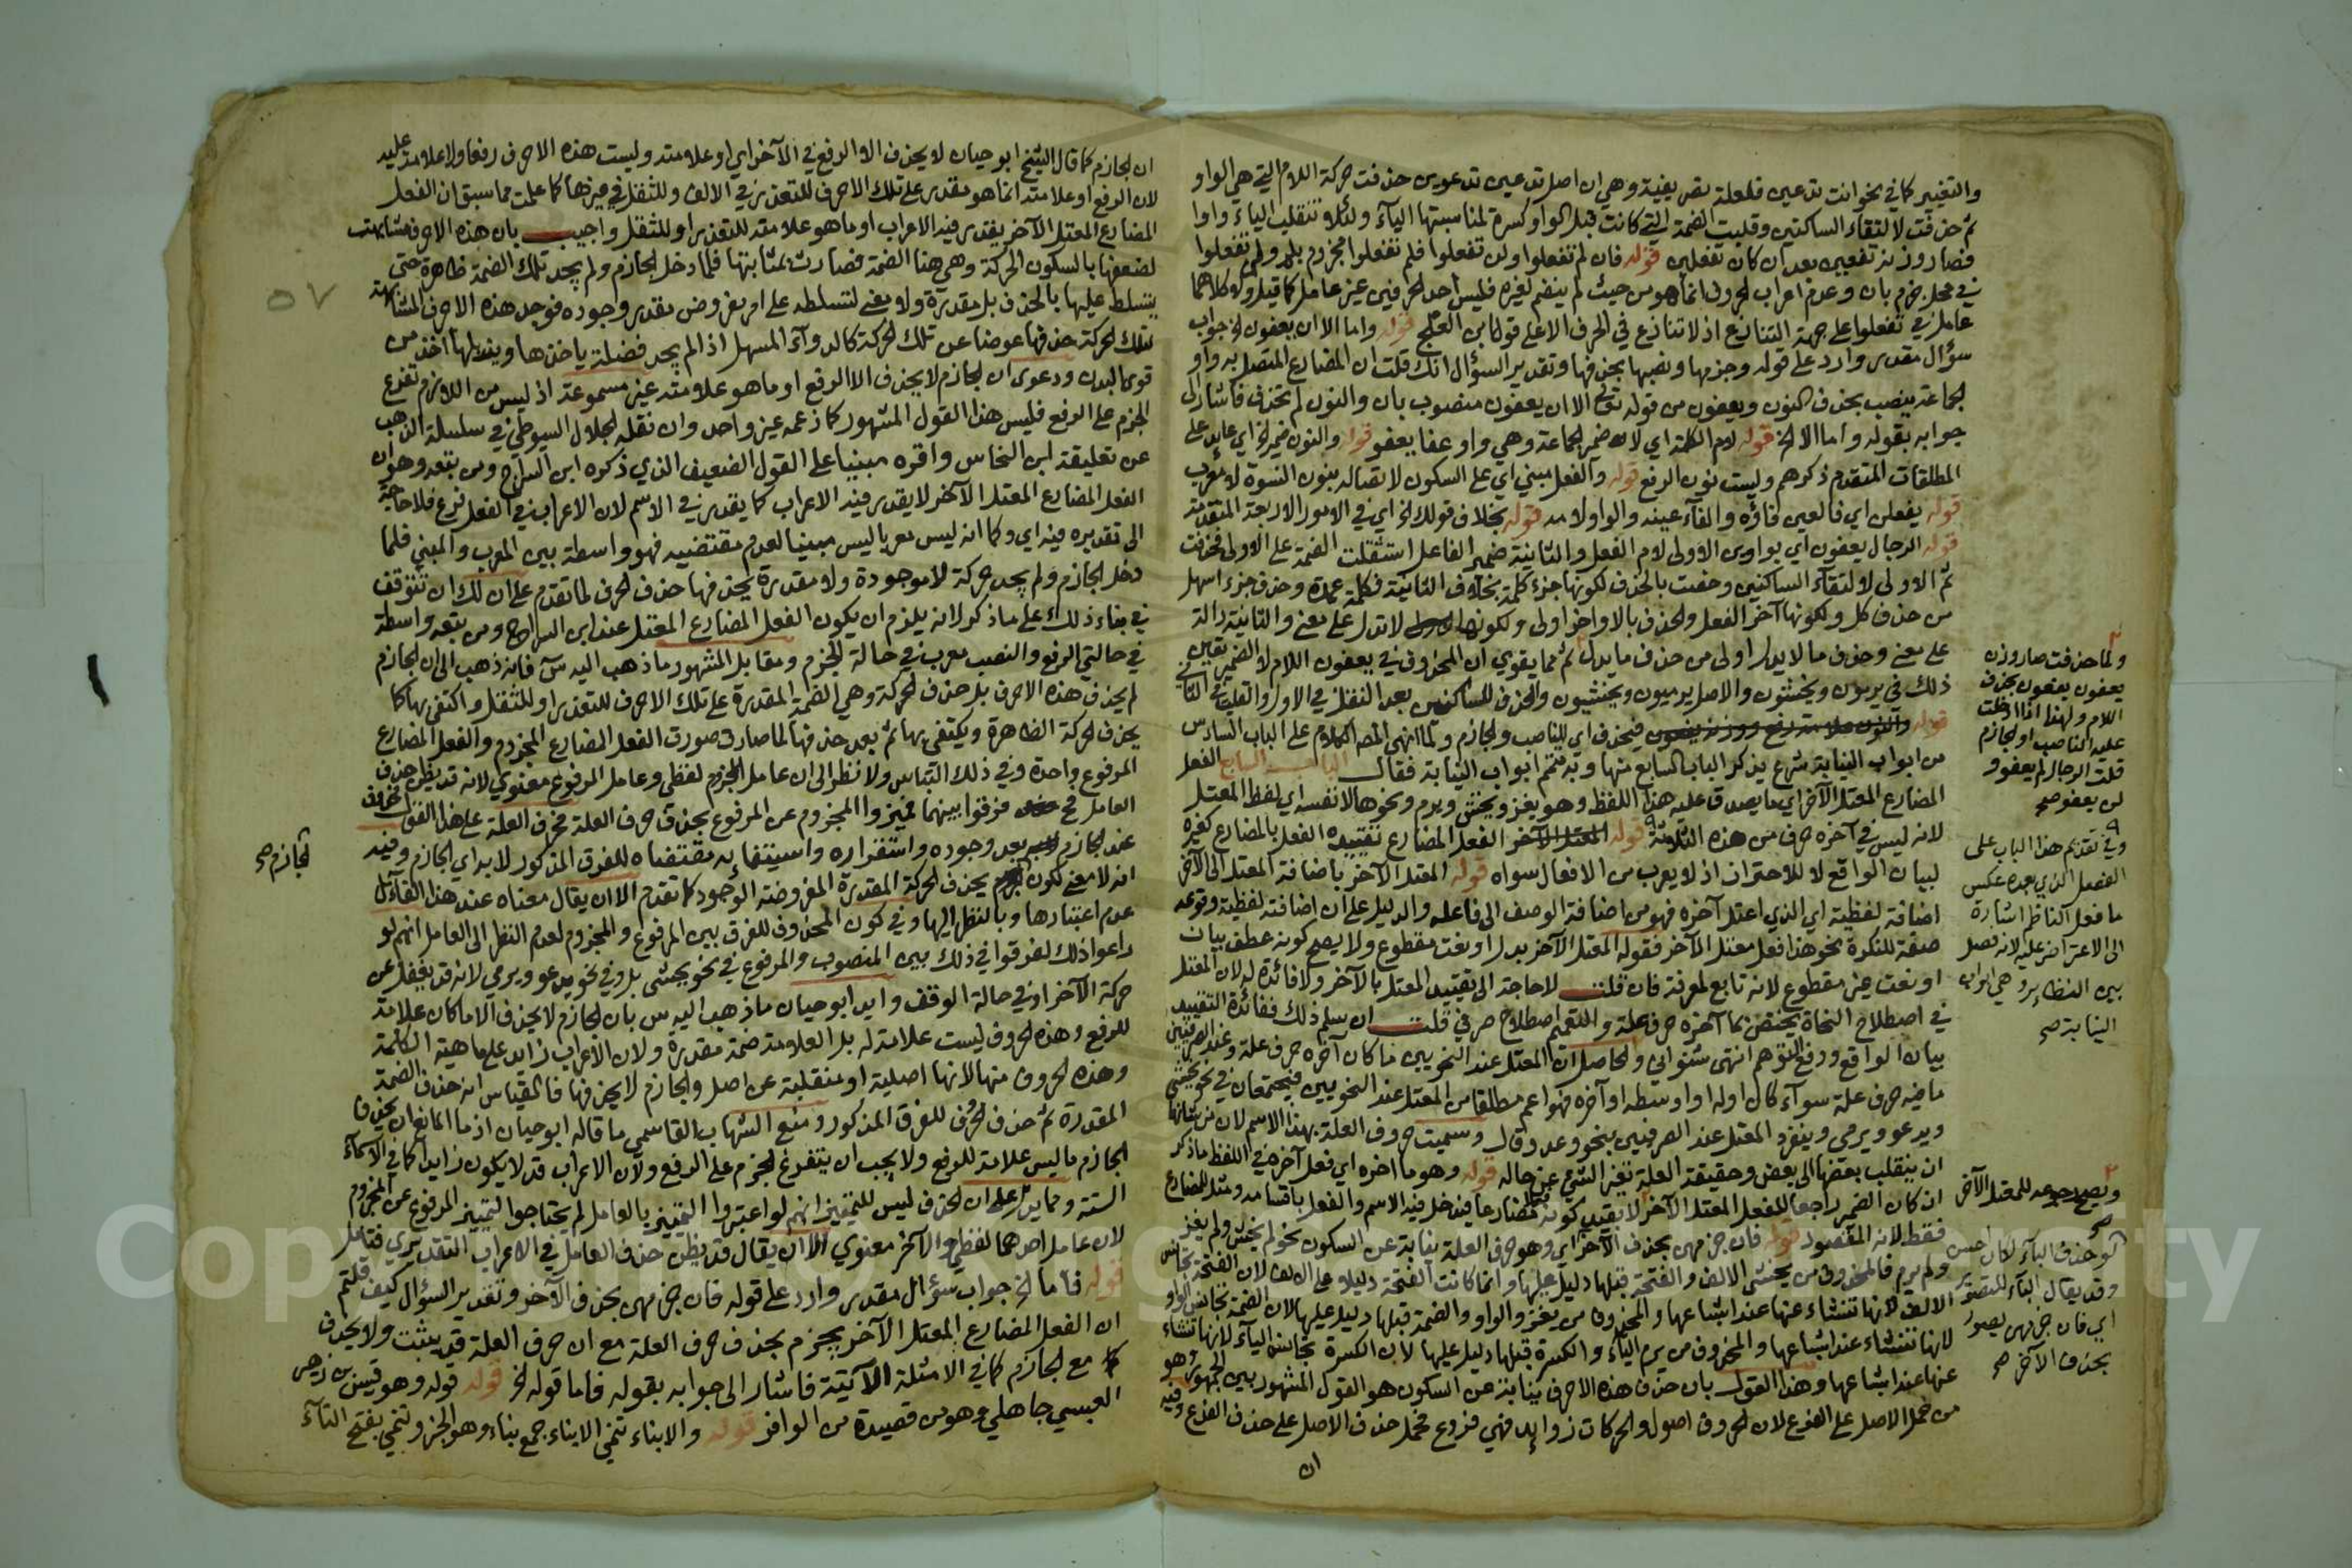 والتغيير كما في نحو انت تدعين فلعلة تصريفية وهي ان اصل تدعين تدعوين حذفت حركة اللام التي هي الواو
ثم حذفت لالتقاء الساكنين وقلبت الضمة التي كانت قبل الواو كسرة لمناسبتها الياء ولئلا تنقلب الياء واوا
فصار وزنه تفعين بعد ان كان تفعلين قوله فان لم تفعلوا ولن تفعلوا فلم تفعلوا مجزوم بلم ولم تفعلوا
في محل جزم بان وعدم اعراب الحروف انما هو من حيث لم ينضم لغيره فليس احد الحرفين عن عامل كما قيل ولا كلاهما
عامل في تفعلوا على جهة التنازع اذ لا تنازع في الحرف الا على قول ابن العلج قوله واما الا ان يعفون الخ جواب
سؤال مقدر وارد على قوله وجزمها ونصبها بحذفها وتقدير السؤال انك قلت ان المضارع المتصل به واو
الجماعة ينصب بحذف النون ويعفون من قوله تعالى الا ان يعفون منصوب بان والنون لم تحذف فاشار الى
جوابه بقوله واما الا الخ قوله لام الكلمة اي لانه ضمير الجماعة وهي واو عفا يعفو قوله والنون ضمير الخ اي عائد على
المطلقات المتقدم ذكرهم وليست نون الرفع قوله والفعل مبني اي على السكون لاتصاله بنون النسوة لا معرب
قوله يفعلن اي فالعين فاؤه والفاء عينه والواو لامه قوله بخلاف قولك الخ اي في الامور الاربعة المتقدمة
قوله الرجال يعفون اي بواوين الاولى لام الفعل والثانية ضمير الفاعل استثقلت الضمة على الاولى فحذفت
ثم الاولى لالتقاء الساكنين وخصت بالحذف لكونها جزء كلمة بخلاف الثانية فكلمة عمدة وحذف جزء اسهل
من حذف كل ولكونها آخر الفعل والحذف بالاواخر اولى ولكونها لا تدل على معنى والثانية دالة
على معنى وحذف ما لا يدل اولى من حذف ما يدل ثم مما يقوي ان المحذوف في يعفون اللام لا الضمير تعين
ذلك في يرمون ويخشون والاصل يرميون ويخشيون والحذف للساكنين بعد النقل في الاول والقلب في الثاني
قوله فتحذف اي للناصب والجازم ولما انهى المصنف الكلام على الباب السادس
من ابواب النيابة شرع يذكر الباب السابع منها وبه تختم ابواب النيابة فقال الباب السابع الفعل
المضارع المعتل الآخر اي ما يصدق عليه هذا اللفظ وهو يغزو ويخشى ويرمي ونحوها لا نفسه اي لفظ المعتل
لانه ليس في آخره حرف من هذه الثلاثة قوله الفعل المضارع تقييده الفعل بالمضارع كغيره
لبيان الواقع لا للاحتراز اذ لا يعرب من الافعال سواه قوله المعتل الآخر باضافة المعتل الى الآخر
اضافة لفظية اي الذي اعتل آخره فهو من اضافة الوصف الى فاعله والدليل على ان اضافته لفظية وقوعه
صفة للنكرة نحو هذا فعل معتل الآخر فقوله المعتل الآخر بدل او نعت مقطوع ولا يصح كونه عطف بيان
او نعت غير مقطوع لانه تابع لمعرفة فان قلت لا حاجة الى تقييد المعتل بالآخر ولا فائدة له لان المعتل
في اصطلاح النحاة يختص بما آخره حرف علة والتعميم اصطلاح صرفي قلت ان سلم ذلك ففائدة التقييد
بيان الواقع ودفع التوهم انتهى شنواني والحاصل ان المعتل عند النحويين ما كان آخره حرف علة وعند الصرفيين
ما فيه حرف علة سواء كان اوله او اوسطه او آخره فهو اعم مطلقا من المعتل عند النحويين فيجتمعان في نحو يخشى
ويدعو ويرمي وينفرد المعتل عند الصرفيين بنحو وعد وقال وسميت حروف العلة بهذا الاسم لان من شانها
ان ينقلب بعضها الى بعض وحقيقة العلة تغير الشيء عن حاله قوله وهو ما آخره اي فعل آخره في اللفظ ما ذكر
ان كان الضمير راجعا للفعل المعتل الآخر لا بقيد كونه مضارعا فيدخل فيه الاسم والفعل باقسامه ومثل المضارع
فقط لانه المقصود قوله فان جزمهن بحذف الآخر اي وهو حرف العلة نيابة عن السكون نحو لم يخش ولم يغز
ولم يرم فالمحذوف من يخشى الالف والفتحة قبلها دليل عليها وانما كانت الفتحة دليلا على الالف لان الفتحة تجانس
الالف لانها تنشاء عنها عند اشباعها والمحذوف من يغزو الواو والضمة قبلها دليل عليها لان الضمة تجانس الواو
لانها تنشاء عند اشباعها والمحذوف من يرمي الياء والكسرة قبلها دليل عليها لان الكسرة تجانس الياء لانها تنشاء
عنها عند اشباعها وهذا القول بان حذف هذه الاحرف نيابة عن السكون هو القول المشهور بين الجمهور وهو
من حمل الاصل على الفرع لان الحروف اصول والحركات زوايد فهي فروع فحمل حذف الاصل على حذف الفرع وفيه
ان
ولما حذفت صار وزن
يعفون يفعون بحذف
اللام ولهذا اذا ادخلت
عليه الناصب او الجازم
قلت الرجال لم يعفوو
لن يعفو صح
وفي تقديم هذا الباب على
الفصل الذي بعده عكس
ما فعل الناظم اشارة
الى الاعتراض عليه لانه فصل
بين النظاير وهي ابواب
النيابة صح
ويصح رجوعه للمعتل الآخر
لو حذف الباء لكان احسن
وقد يقال الباء للتصوير
اي فان جزمهن يصور
بحذف الآخر صح
٥٧
ان الجازم كما قال الشيخ ابو حيان لا يحذف الا الرفع في الآخر اي او علامته وليست هذه الاحرف رفعا ولا علامة عليه
لان الرفع او علامته انما هو مقدر على تلك الاحرف للتعذر في الالف وللثقل في غيرها كما علمت مما سبق ان الفعل
المضارع المعتل الآخر يقدر فيه الاعراب او ما هو علامته للتعذر او للثقل واجيب بان هذه الاحرف مشابهة
لضعفها بالسكون الحركة وهي هنا الضمة فصارت بمثابتها فلما دخل الجازم ولم يجد تلك الضمة ظاهرة حتى
يتسلط عليها بالحذف بل مقدرة ولا معنى لتسلطه على امر مفروض مقدر وجوده فوجد هذه الاحرف المشابهة
لتلك الحركة حذفها عوضا عن تلك الحركة كالدواء المسهل اذا لم يجد فضلة ياخذها ويزيلها اخذ من
قوى البدن ودعوى ان الجازم لا يحذف الا الرفع او ما هو علامته غير مسموعة اذ ليس من اللازم تفرع
الجزم على الرفع فليس هذا القول المشهور كما زعمه غير واحد وان نقله الجلال السيوطي في سلسلة الذهب
عن تعليقة ابن النحاس واقره مبنيا على القول الضعيف الذي ذكره ابن السراج ومن تبعه وهو ان
الفعل المضارع المعتل الآخر لا يقدر فيه الاعراب كما يقدر في الاسم لان الاعراب في الفعل فرع فلا حاجة
الى تقديره فيه اي وكما انه ليس معربا ليس مبنيا لعدم مقتضيه فهو واسطة بين المعرب والمبني فلما
دخل الجازم ولم يجد حركة لا موجودة ولا مقدرة يحذفها حذف الحرف لما تقدم على ان لك ان تتوقف
في بناء ذلك على ما ذكر لانه يلزم ان يكون الفعل المضارع المعتل عند ابن السراج ومن تبعه واسطة
في حالتي الرفع والنصب معرب في حالة الجزم ومقابل المشهور ما ذهب اليه س فانه ذهب الى ان الجازم
لم يحذف هذه الاحرف بل حذف الحركة وهي الضمة المقدرة على تلك الاحرف للتعذر او للثقل واكتفى بها كما
يحذف الحركة الظاهرة ويكتفي بها ثم بعد حذفها لما صارت صورة الفعل المضارع المجزوم والفعل المضارع
المرفوع واحدة وفي ذلك التباس ولا نظر الى ان عامل الجزم لفظي وعامل المرفوع معنوي لانه قد يظن حذف
العامل فرقوا بينهما فميزوا المجزوم عن المرفوع بحذف حرف العلة فحرف العلة على هذا القول محذوف
عند الجازم بعد وجوده واستقراره واستيفاء به مقتضاه للفرق المذكور لا به اي الجازم وفيه
انه لا معنى لكون يحذف الحركة المقدرة المفروضة الوجود كما تقدم الا ان يقال معناه عند هذا القائل
عدم اعتبارها وبالنظر اليها وفي كون المحذوف للفرق بين المرفوع والمجزوم لعدم النظر الى العامل انهم لو
راعوا ذلك لفرقوا في ذلك بين المنصوب والمرفوع في نحو يخشى بل وفي نحو يدعو ويرمي لانه قد يغفل عن
حركة الآخر او في حالة الوقف وايد ابو حيان ما ذهب اليه س بان الجازم لا يحذف الا ما كان علامة
للرفع وهذه الحروف ليست علامة له بل العلامة ضمة مقدرة ولان الاعراب زايد على ماهية الكلمة
وهذه الحروف منها لانها اصلية او منقلبة عن اصل والجازم لا يحذفها فالقياس انه حذف الضمة
المقدرة ثم حذف الحرف للفرق المذكور ومنع الشهاب القاسمي ما قاله ابو حيان اذ ما المانع ان يحذف
الجازم ما ليس علامة للرفع ولا يجب ان يتفرع الجزم على الرفع ولان الاعراب قد لا يكون زايدا كما في الاسماء
الستة ومما يدل على ان الحذف ليس للتمييز انهم لو اعتبروا التمييز بالعامل لم يحتاجوا لتمييز المرفوع عن المجزوم
لان عامل احدهما لفظي والآخر معنوي الا ان يقال قد يظن حذف العامل في الاعراب التقديري فتامل
قوله فاما الخ جواب سؤال مقدر وارد على قوله فان جزمهن بحذف الآخر وتقدير السؤال كيف قلتم
ان الفعل المضارع المعتل الآخر يجزم بحذف حرف العلة مع ان حرف العلة قد يثبت ولا يحذف
مع الجازم كما في الامثلة الآتية فاشار الى جوابه بقوله فاما قوله الخ قوله قوله وهو قيس بن زهير
العبسي جاهلي وهو من قصيدة من الوافر قوله والابناء تنمي الابناء جمع بناء وهو الخبر وتنمي بفتح التاء
الجازم صح
Copyright © King Saud University